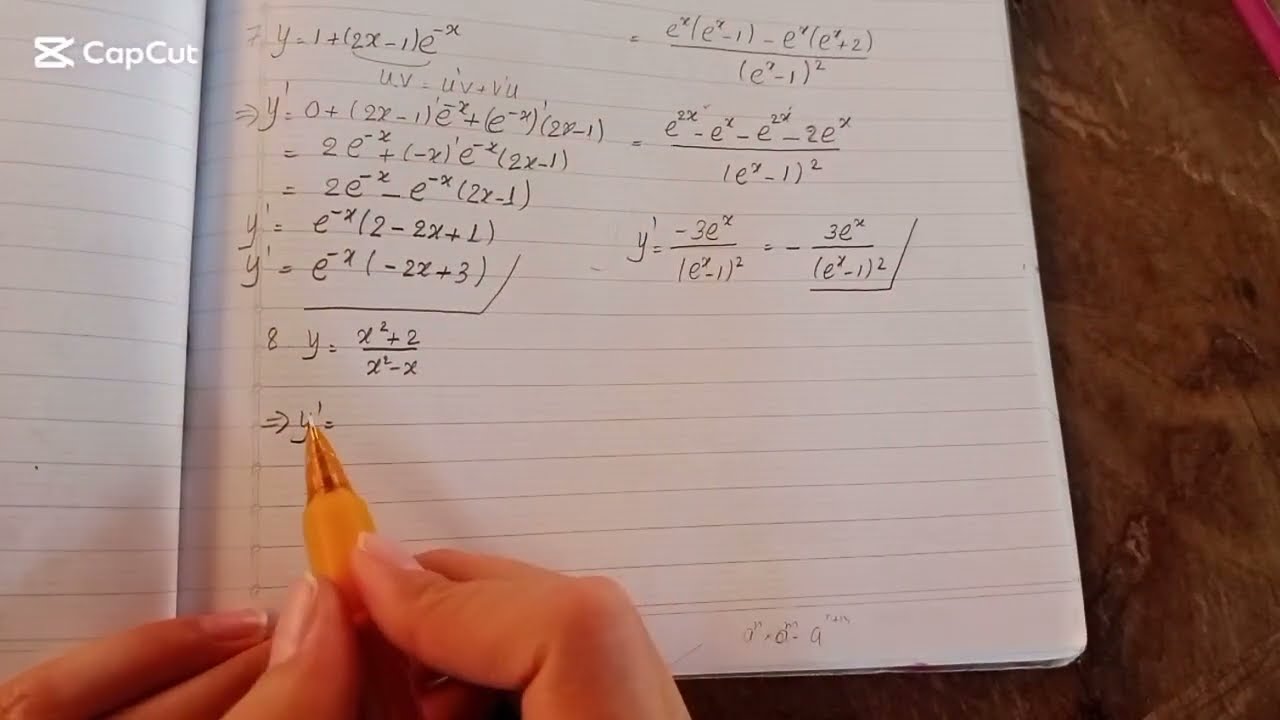 CapCut
7 y = 1 + (2x-1)e^{-x}
u.v = u'v + v'u
⇒ y' = 0 + (2x-1)'e^{-x} + (e^{-x})'(2x-1)
= 2e^{-x} + (-x)'e^{-x}(2x-1)
= 2e^{-x} - e^{-x}(2x-1)
y' = e^{-x}(2-2x+1)
y' = e^{-x}(-2x+3)
8 y = \frac{x^2+2}{x^2-x}
⇒ y' =
= \frac{e^x(e^x-1) - e^x(e^x+2)}{(e^x-1)^2}
= \frac{e^{2x} - e^x - e^{2x} - 2e^x}{(e^x-1)^2}
y' = \frac{-3e^x}{(e^x-1)^2} = - \frac{3e^x}{(e^x-1)^2}
a^n × a^m = a^{n+m}